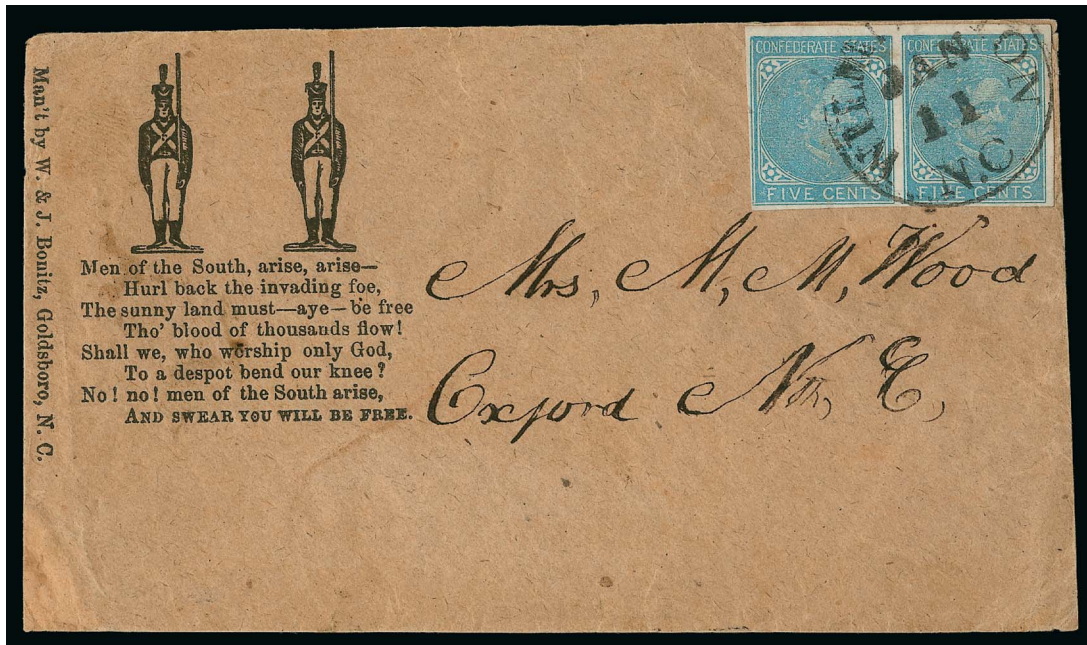 Man't by W. & J. Bonitz, Goldsboro, N. C.
Men of the South, arise, arise—
Hurl back the invading foe,
The sunny land must—aye—be free
Tho' blood of thousands flow!
Shall we, who worship only God,
To a despot bend our knee?
No! no! men of the South arise,
AND SWEAR YOU WILL BE FREE.
CONFEDERATE STATES
FIVE CENTS
CONFEDERATE STATES
FIVE CENTS
JAN
11
N.C
Mrs, M, M, Wood
Oxford Nth, C,